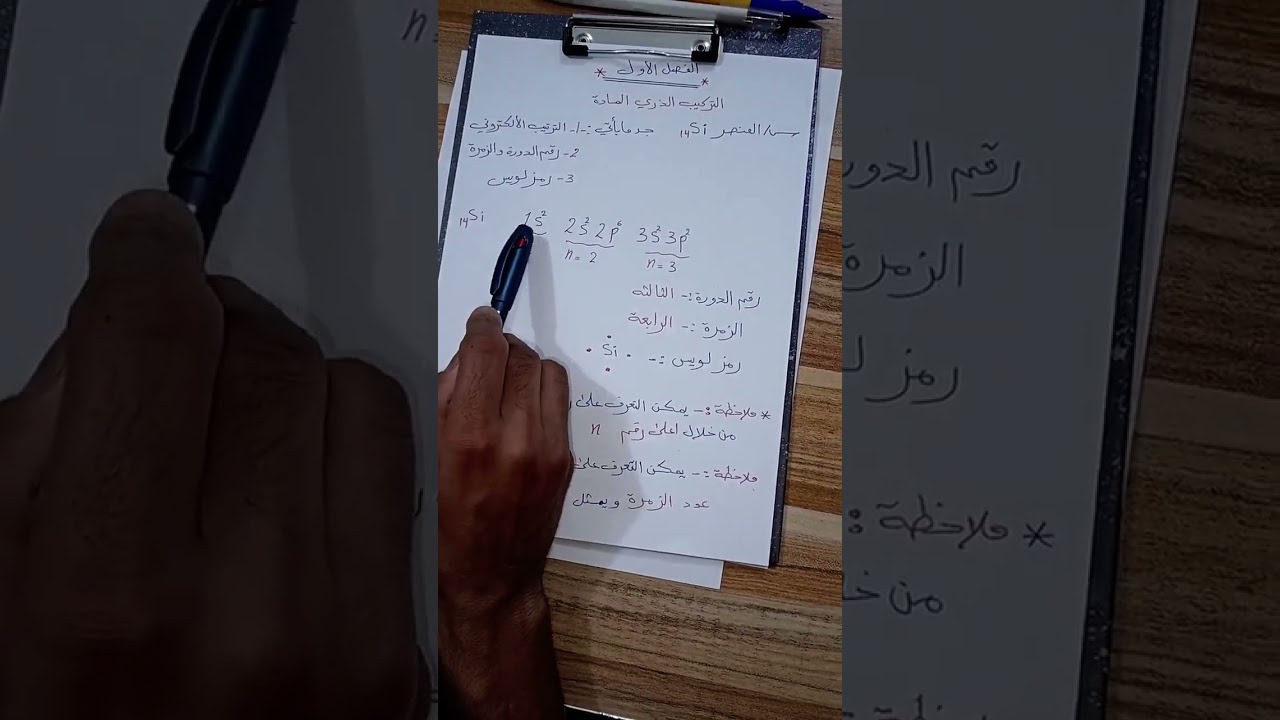 * الفصل الأول *
التركيب الذري المادة
س/ العنصر ₁₄Si جد مايأتي :- 1- الترتيب الألكتروني
2- رقم الدورة والزمرة
3- رمز لويس
₁₄Si 1s² 2s² 2p⁶ 3s² 3p²
n = 2 n = 3
رقم الدورة :- الثالثه
الزمرة :- الرابعة
رمز لويس :- Si
* ملاحظة :- يمكن التعرف على
من خلال اعلى رقم n
ملاحظة :- يمكن التعرف على
عدد الزمرة ويمثل